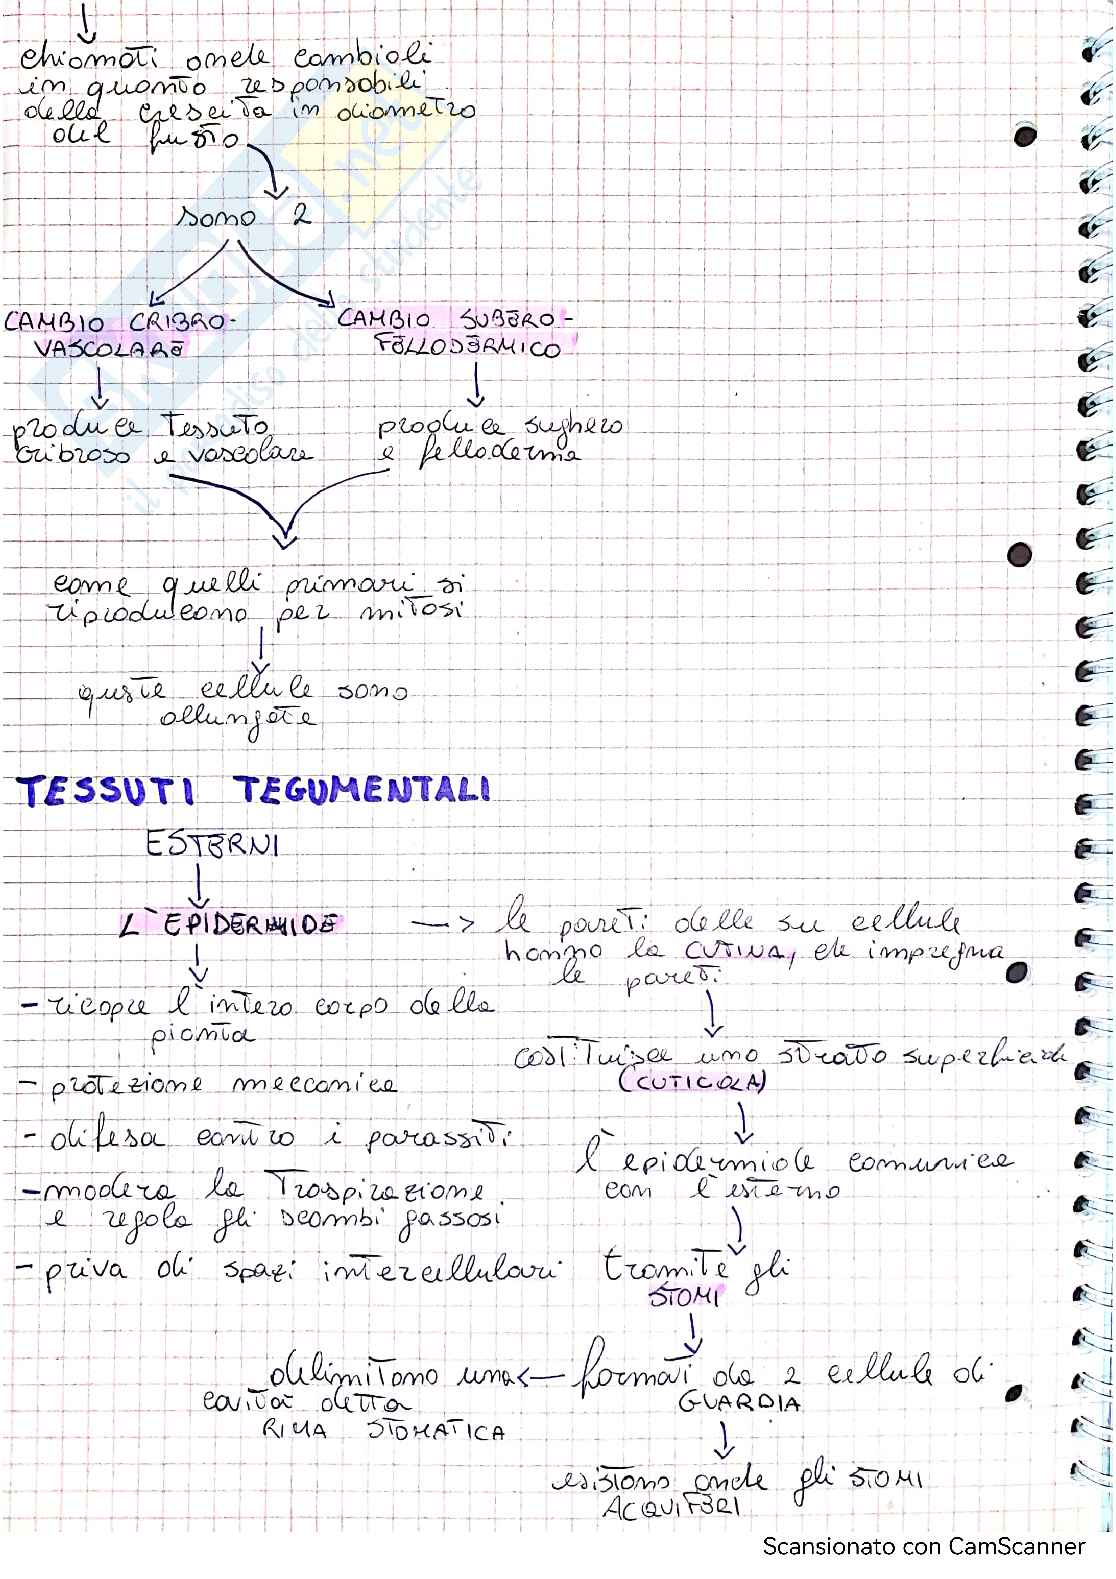 chiamati anche cambiali
in quanto responsabili
della crescita in diametro
del fusto
sono 2
CAMBIO CRIBRO-
VASCOLARE
CAMBIO SUBERO-
FELLODERMICO
produce tessuto
cribroso e vascolare
produce sughero
e felloderma
come quelli primari si
riproducono per mitosi
queste cellule sono
allungate
TESSUTI TEGUMENTALI
ESTERNI
L'EPIDERMIDE
—> le pareti delle su cellule
hanno la CUTINA, che impregna
le pareti
- ricopre l'intero corpo della
pianta
- protezione meccanica
- difesa contro i parassiti
- modera la traspirazione
e regola gli scambi gassosi
- priva di spazi intercellulari
costituisce uno strato superficiale
(CUTICOLA)
l'epidermide comunica
con l'esterno
tramite gli
STOMI
formati da 2 cellule di
GUARDIA
delimitano una <—
cavità detta
RIMA STOMATICA
esistono anche gli STOMI
ACQUIFERI
Scansionato con CamScanner